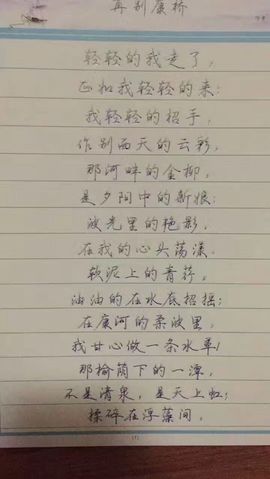 再别康桥
轻轻的我走了,
正如我轻轻的来;
我轻轻的招手,
作别西天的云彩,
那河畔的金柳,
是夕阳中的新娘;
波光里的艳影,
在我的心头荡漾.
软泥上的青荇,
油油的在水底招摇;
在康河的柔波里,
我甘心做一条水草!
那榆荫下的一潭,
不是清泉,是天上虹;
揉碎在浮藻间,